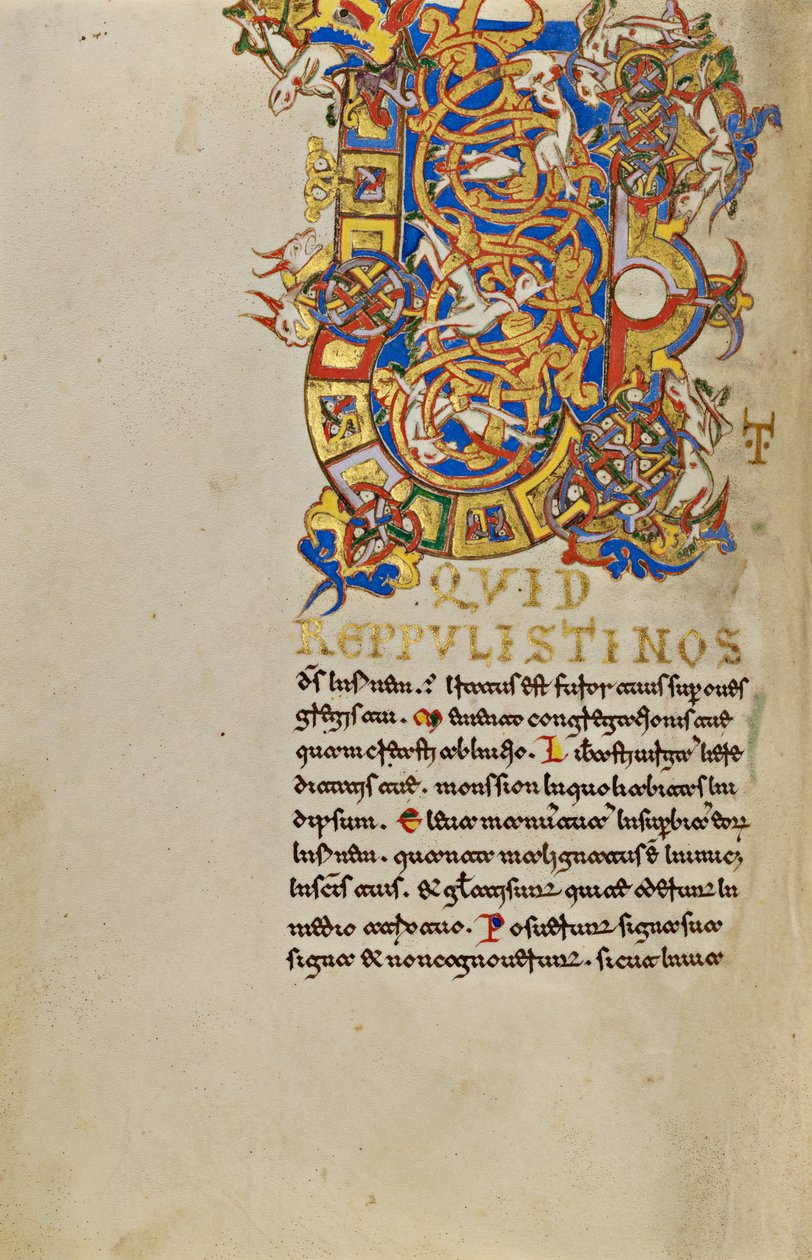 U
·T·
QVID
REPPVLISTI NOS
d̄s in finem. Iratus est furor tuus sup oues
gregis tui. Memento congregationis tue
quam creasti ab initio. Lib̄asti uirgā here
ditatis tue. mons sion in quo habitas in
idipsum. Eleua manū tuā in supbiā eorꝝ
in finem. quanta malignatus ē inimic;
in sc̄is tuis. & gl̄ati sunt qui te oderunt in
medio atrio tuo. Posuerunt signa sua
signa & non cognouerunt. sicut in uia